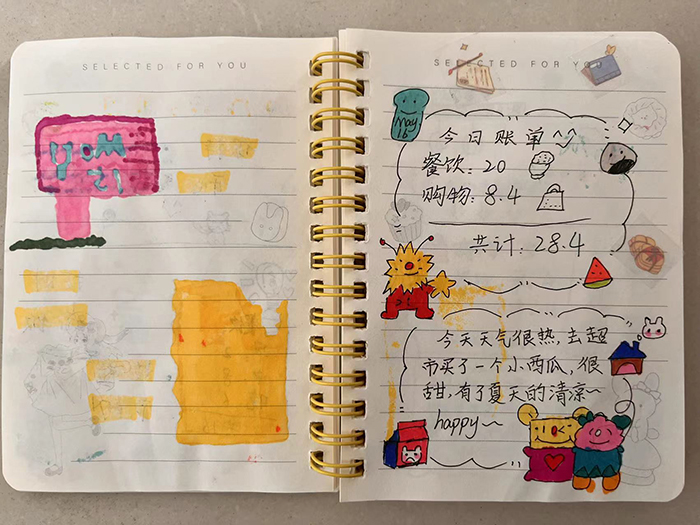 SELECTED FOR YOU
SELECTED FOR YO
May
16
今日账单^^
餐饮：20
购物：8.4
共计：28.4
今天天气很热，去超
市买了一个小西瓜，很
甜，有了夏天的清凉~
happy~